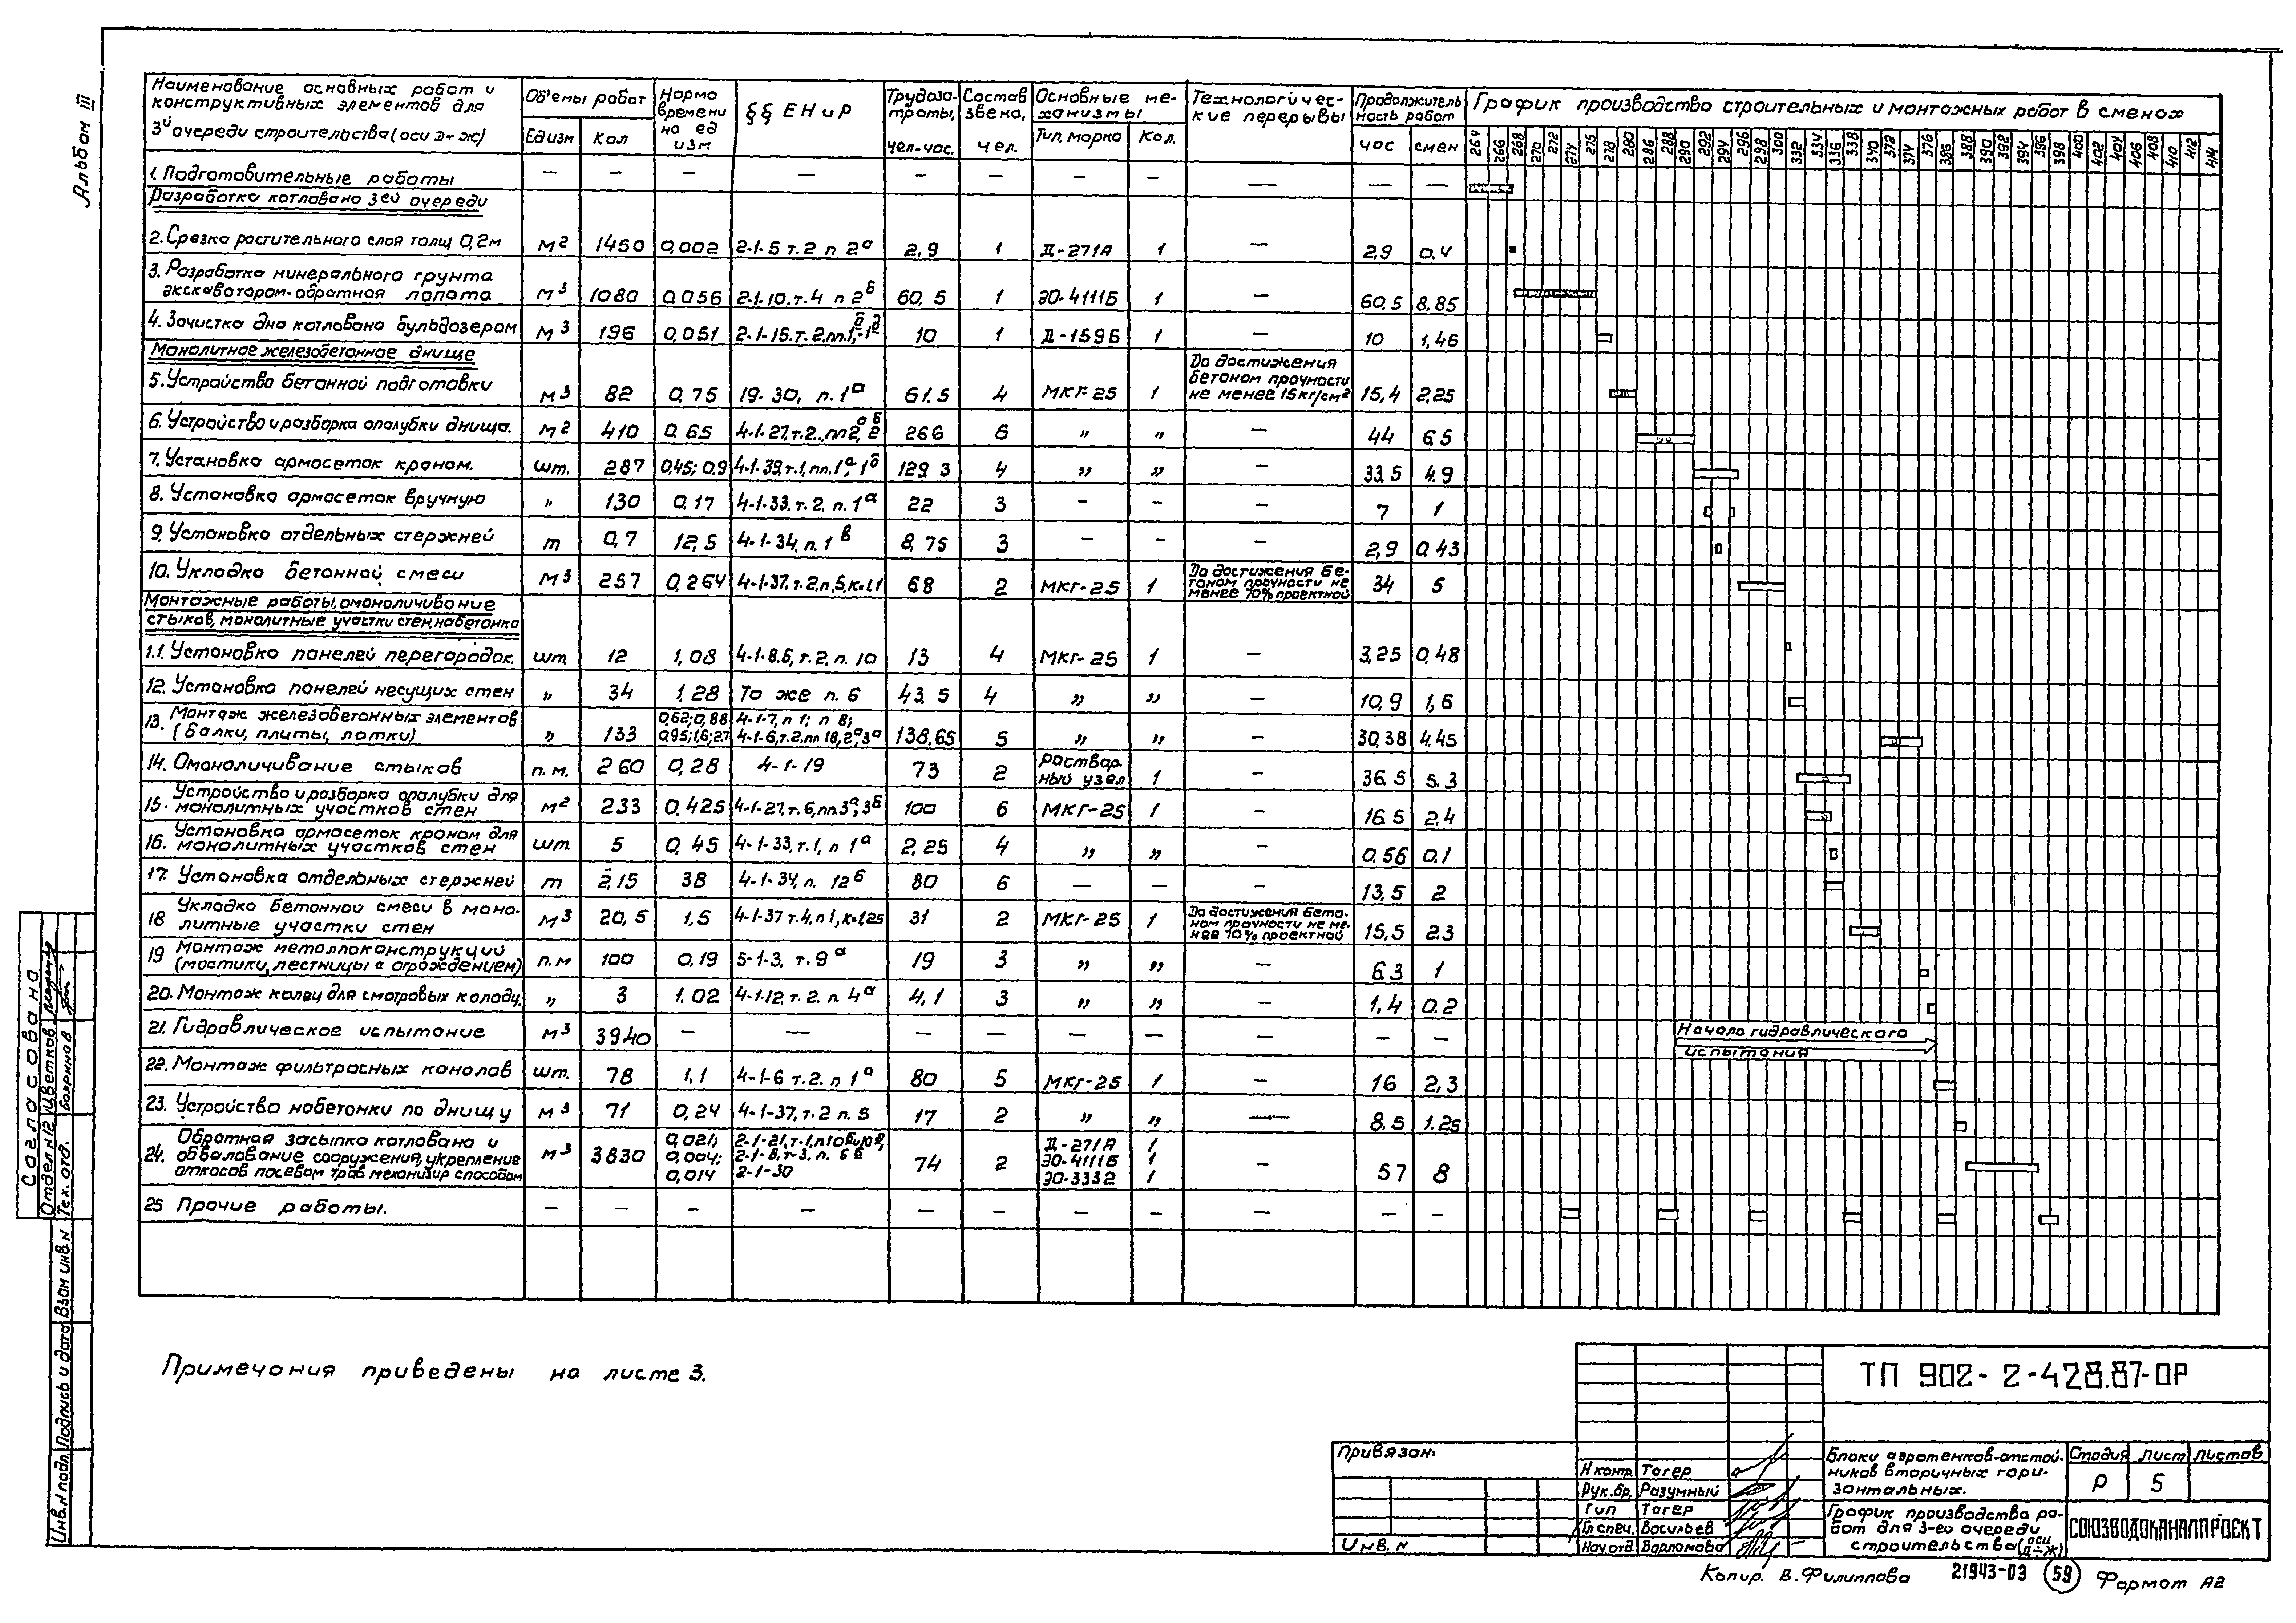 Альбом III
Наименование основных работ и конструктивных элементов для 3й очереди строительства (оси Д÷Ж)
Объемы работ
Ед изм
Кол
Норма времени на ед изм
§§ ЕНиР
Трудозатраты, чел-час.
Состав звена, чел.
Основные механизмы
Тип, марка
Кол.
Технологические перерывы
Продолжительность работ
час
смен
График производства строительных и монтажных работ в сменах
264 266 268 270 272 274 275 278 280 286 288 290 292 294 296 298 300 332 334 336 338 340 372 374 376 386 388 390 392 394 396 398 400 402 404 406 408 410 412 414
1. Подготовительные работы — — — — — — — — — — —
Разработка котлована 3ей очереди
2. Срезка растительного слоя толщ 0,2м м2 1450 0,002 2-1-5 т.2 п 2а 2,9 1 Д-271А 1 — 2,9 0.4
3. Разработка минерального грунта экскаватором-обратная лопата м3 1080 0,056 2-1-10.т.4 п 2б 60,5 1 ЭО-4111Б 1 — 60,5 8,85
4. Зачистка дна котлована бульдозером м3 196 0,051 2-1-15.т.2.пп.1б,-1д 10 1 Д-159Б 1 — 10 1,46
Монолитное железобетонное днище
5. Устройство бетонной подготовки м3 82 0,75 19-30, п.1а 61.5 4 МКГ-25 1 До достижения бетоном прочности не менее 15кг/см2 15,4 2,25
6. Устройство и разборка опалубки днища. м2 410 0,65 4-1-27,т.2.,пп2а,2б 266 6 „ „ — 44 6.5
7. Установка армосеток краном. шт. 287 0,45; 0,9 4-1-39,т.1,пп.1а,1б 129 3 4 „ „ — 33.5 4.9
8. Установка армосеток вручную „ 130 0,17 4-1-33.т.2. п.1а 22 3 — — — 7 1
9. Установка отдельных стержней т 0,7 12,5 4-1-34, п.1в 8,75 3 — — — 2,9 0,43
10. Укладка бетонной смеси м3 257 0,264 4-1-37.т.2,п.5,К=1,1 68 2 МКГ-25 1 До достижения бетоном прочности не менее 70% проектной 34 5
Монтажные работы, омоноличивание стыков, монолитные участки стен, набетонка
11. Установка панелей перегородок. шт 12 1,08 4-1-8.б, т.2, п. 10 13 4 МКГ-25 1 — 3,25 0,48
12. Установка панелей несущих стен „ 34 1,28 То же п. 6 43.5 4 „ „ — 10,9 1,6
13. Монтаж железобетонных элементов (балки, плиты, лотки) „ 133 0,62; 0,88 0,95; 1,6; 2,7 4-1-7, п 1; п 8; 4-1-6, т.2.пп 18, 2а, 3а 138,65 5 „ „ — 30,38 4.45
14. Омоноличивание стыков п.м. 260 0,28 4-1-19 73 2 Растворный узел 1 — 36.5 5.3
15. Устройство и разборка опалубки для монолитных участков стен м2 233 0,425 4-1-27, т.6, пп.3а, 3б 100 6 МКГ-25 1 — 16.5 2,4
16. Установка армосеток краном для монолитных участков стен шт 5 0,45 4-1-33, т.1, п 1а 2,25 4 „ „ — 0,56 0.1
17. Установка отдельных стержней т 2,15 38 4-1-34, п. 12б 80 6 — — — 13,5 2
18 Укладка бетонной смеси в монолитные участки стен м3 20,5 1,5 4-1-37 т.4, п 1, К=1,25 31 2 МКГ-25 1 До достижения бетоном прочности не менее 70% проектной 15,5 2.3
19 Монтаж металлоконструкций (мостики, лестницы с ограждением) п.м 100 0.19 5-1-3, т.9а 19 3 „ „ — 6.3 1
20. Монтаж колец для смотровых колодц. „ 3 1.02 4-1-12 т.2. п 4а 4,1 3 „ „ — 1,4 0.2
21. Гидравлическое испытание м3 3940 — — — — — — — — —
Начало гидравлического испытания
22. Монтаж фильтросных каналов шт. 78 1,1 4-1-6 т.2. п 1а 80 5 МКГ-25 1 — 16 2,3
23. Устройство набетонки по днищу м3 71 0,24 4-1-37, т.2 п.5 17 2 „ „ — 8.5 1.25
24. Обратная засыпка котлована и обвалование сооружения, укрепление откосов посевом трав механизир способом м3 3830 0,021; 0,004; 0,014 2-1-21, т.1, п10б и 10в, 2-1-8, т-3, п. 5в 2-1-30 74 2 Д-271А 1 ЭО-4111Б 1 ЭО-3332 1 — 57 8
25 Прочие работы. — — — — — — — — — — —
Примечания приведены на листе 3.
Согласовано
Отдел №12 Цветков
Тех. отд. Бояринов
Взам инв. N
Подпись и дата
Инв. N подл.
Привязан:
Инв. N
Н контр. Тагер
Рук. бр. Разумный
Гип Тагер
Гл спец. Васильев
Нач. отд Варламова
ТП 902-2-428.87-ОР
Блоки аэротенков-отстойников вторичных горизонтальных.
Стадия Лист Листов
Р 5
График производства работ для 3-ей очереди строительства (оси Д÷Ж)
СОЮЗВОДОКАНАЛПРОЕКТ
Копир. В. Филиппова 21943-03 59 Формат А2